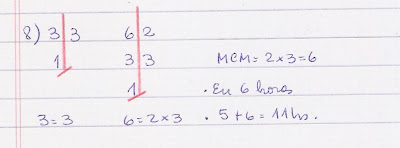 8) 3 3 6 2
1 3 3 MCM = 2 x 3 = 6
1 . Eu 6 horas
3 = 3 6 = 2 x 3 . 5 + 6 = 11 hs.